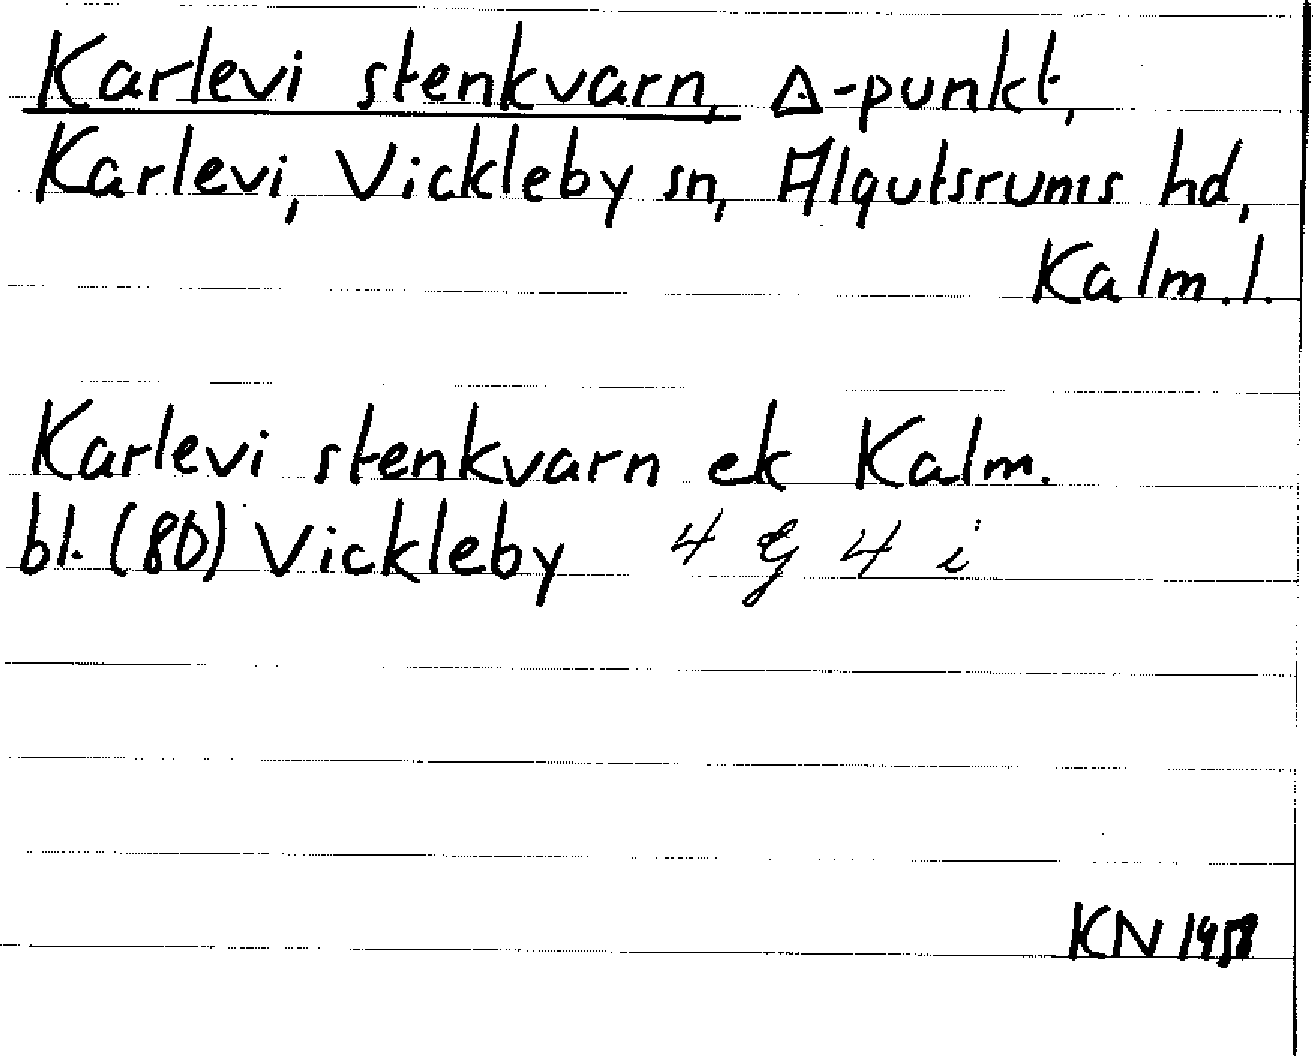 Karlevi stenkvarn, Δ-punkt,
Karlevi, Vickleby sn, Algutsrums hd,
Kalm. l.
Karlevi stenkvarn ek Kalm.
bl. (80) Vickleby 4 G 4 i
KN